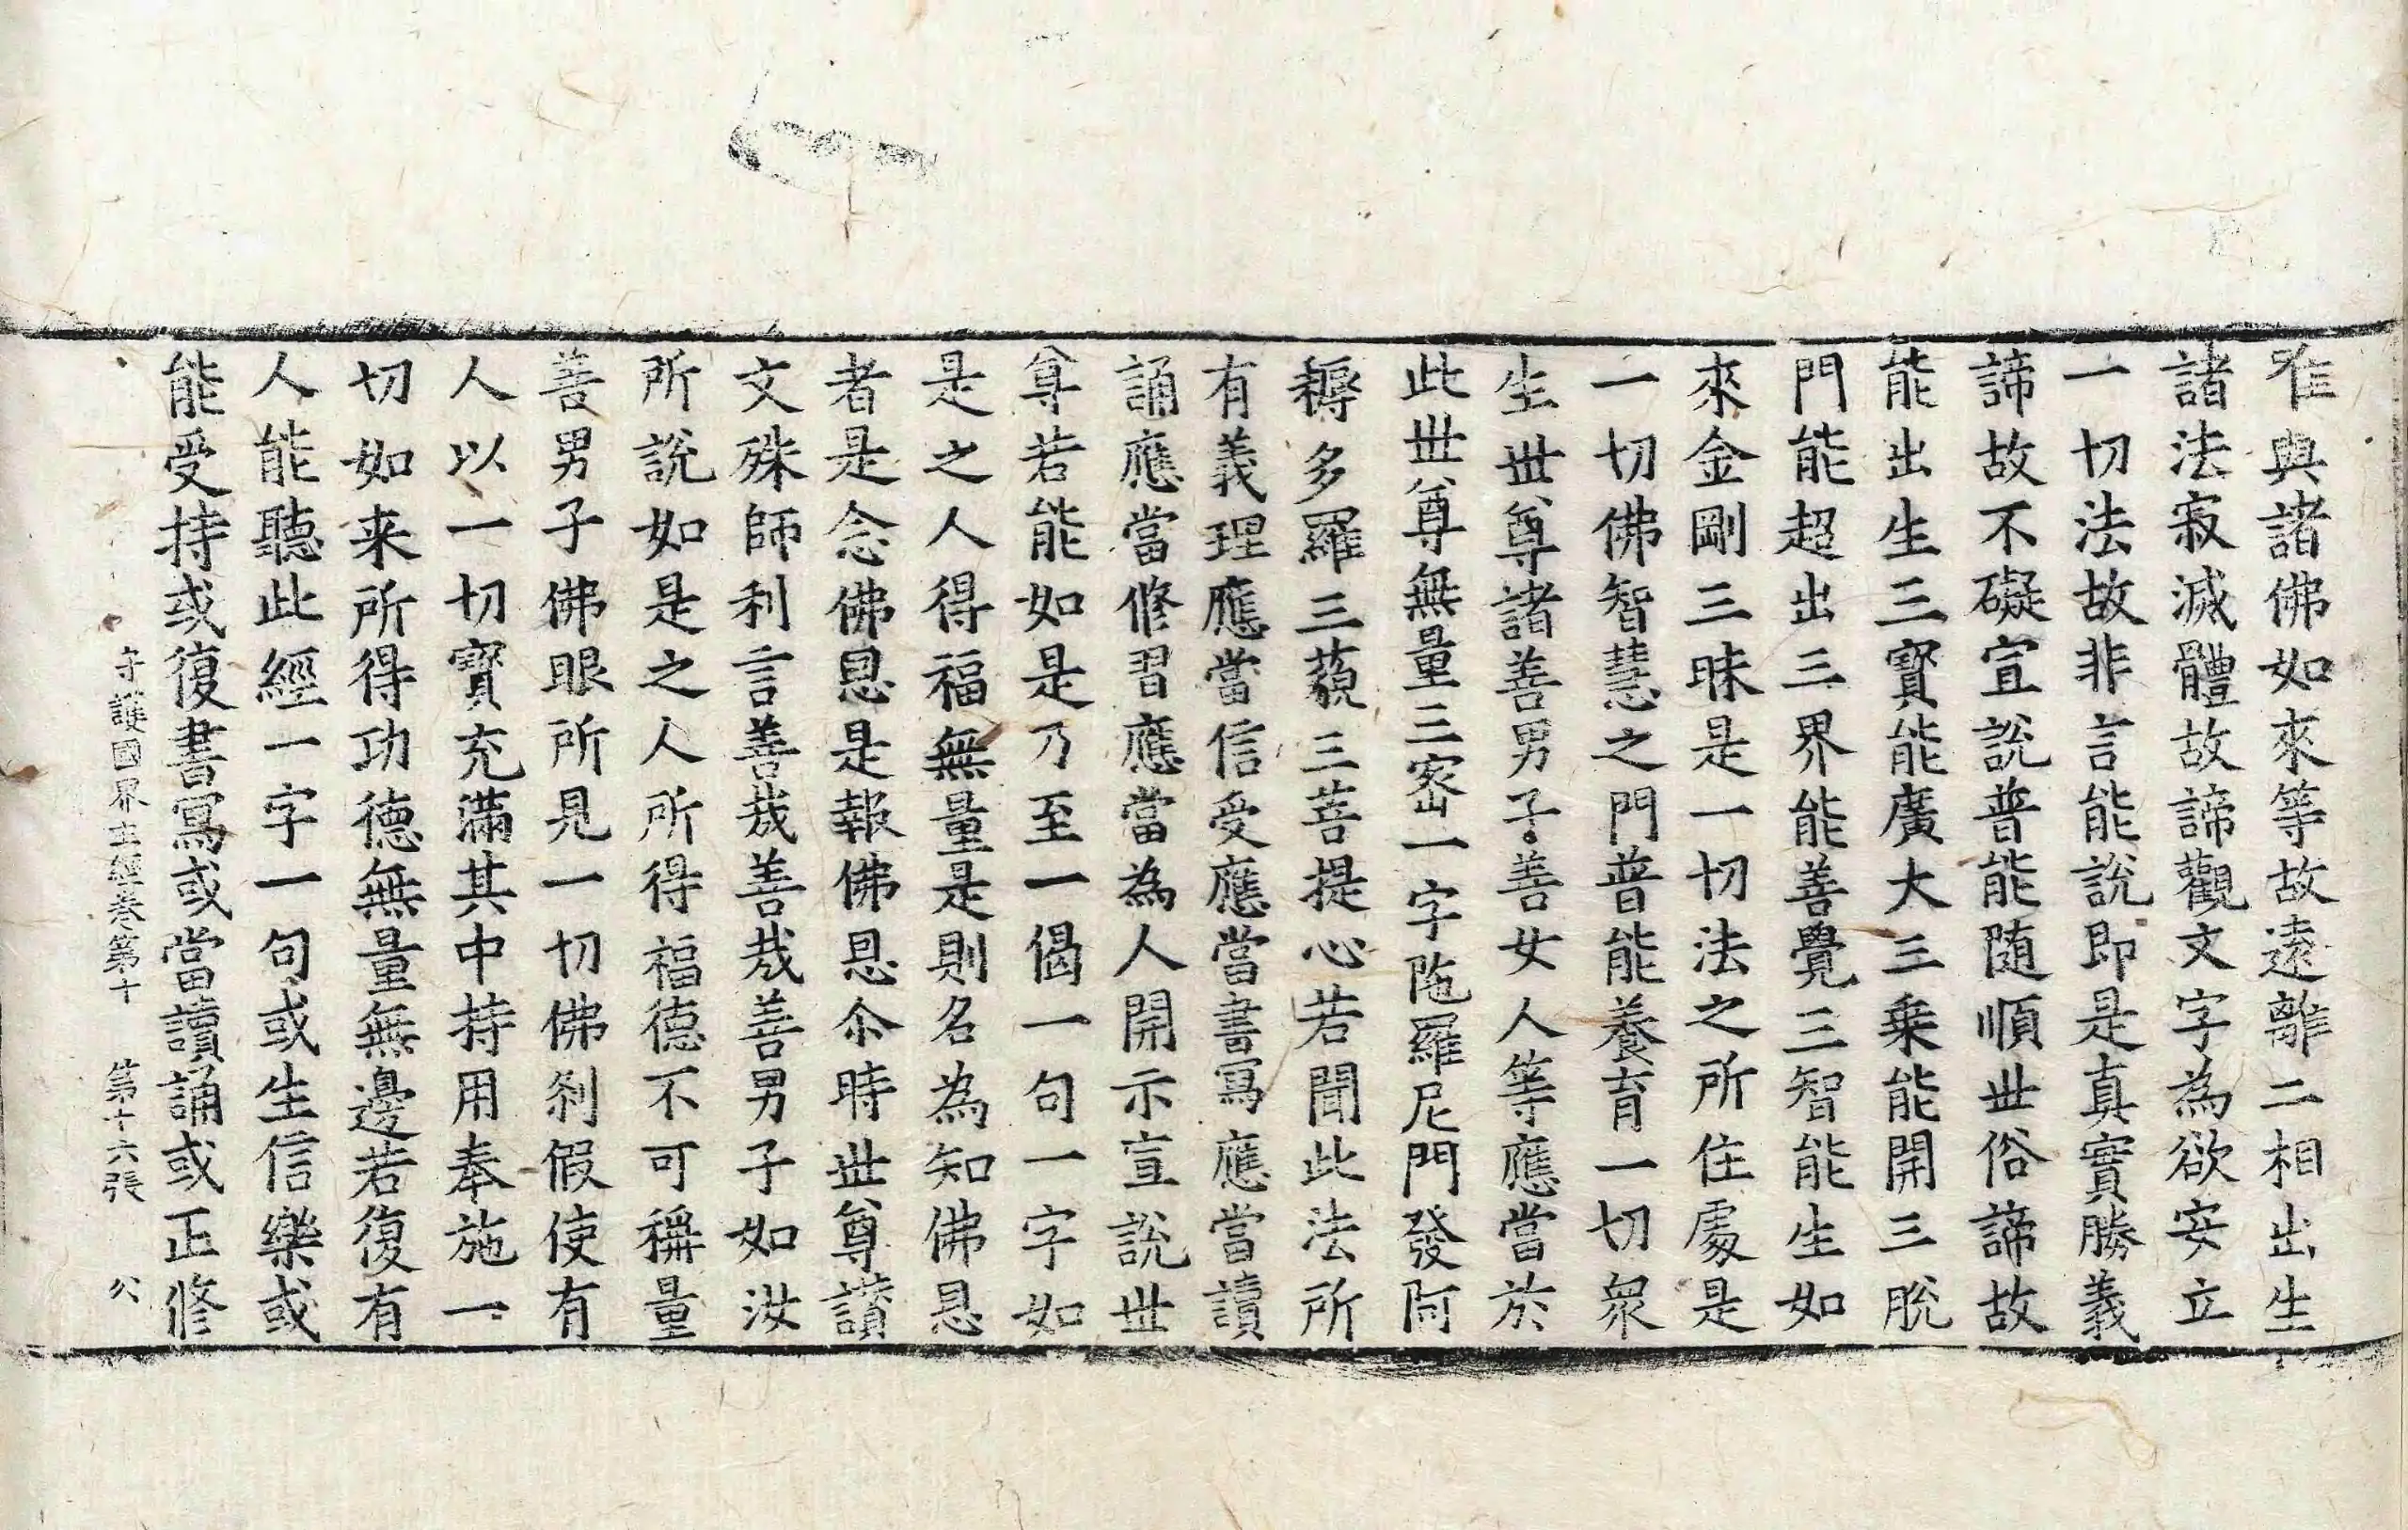 隹與諸佛如來等故遠離二相出生
諸法寂滅體故諦觀文字為欲安立
一切法故非言能說即是真實勝義
諦故不礙宣說普能随順世俗諦故
能出生三寳能廣大三乗能開三脫
門能超出三界能善覺三智能生如
來金剛三昧是一切法之所住處是
一切佛智慧之門普能養育一切衆
生世尊諸善男子善女人等應當於
此世尊無量三密一字陁羅尼門發阿
耨多羅三藐三菩提心若聞此法所
有義理應當信受應當書寫應當讀
誦應當修習應當為人開示宣說世
尊若能如是乃至一偈一句一字如
是之人得福無量是則名為知佛恩
者是念佛恩是報佛恩尒時世尊讃
文殊師利言善哉善哉善男子如汝
所說如是之人所得福德不可稱量
善男子佛眼所見一切佛刹假使有
人以一切寳充滿其中持用奉施一
切如来所得功德無量無邊若復有
人能聽此經一字一句或生信樂或
能受持或復書寫或當讀誦或正修
守護國界主經卷第十　第十六張